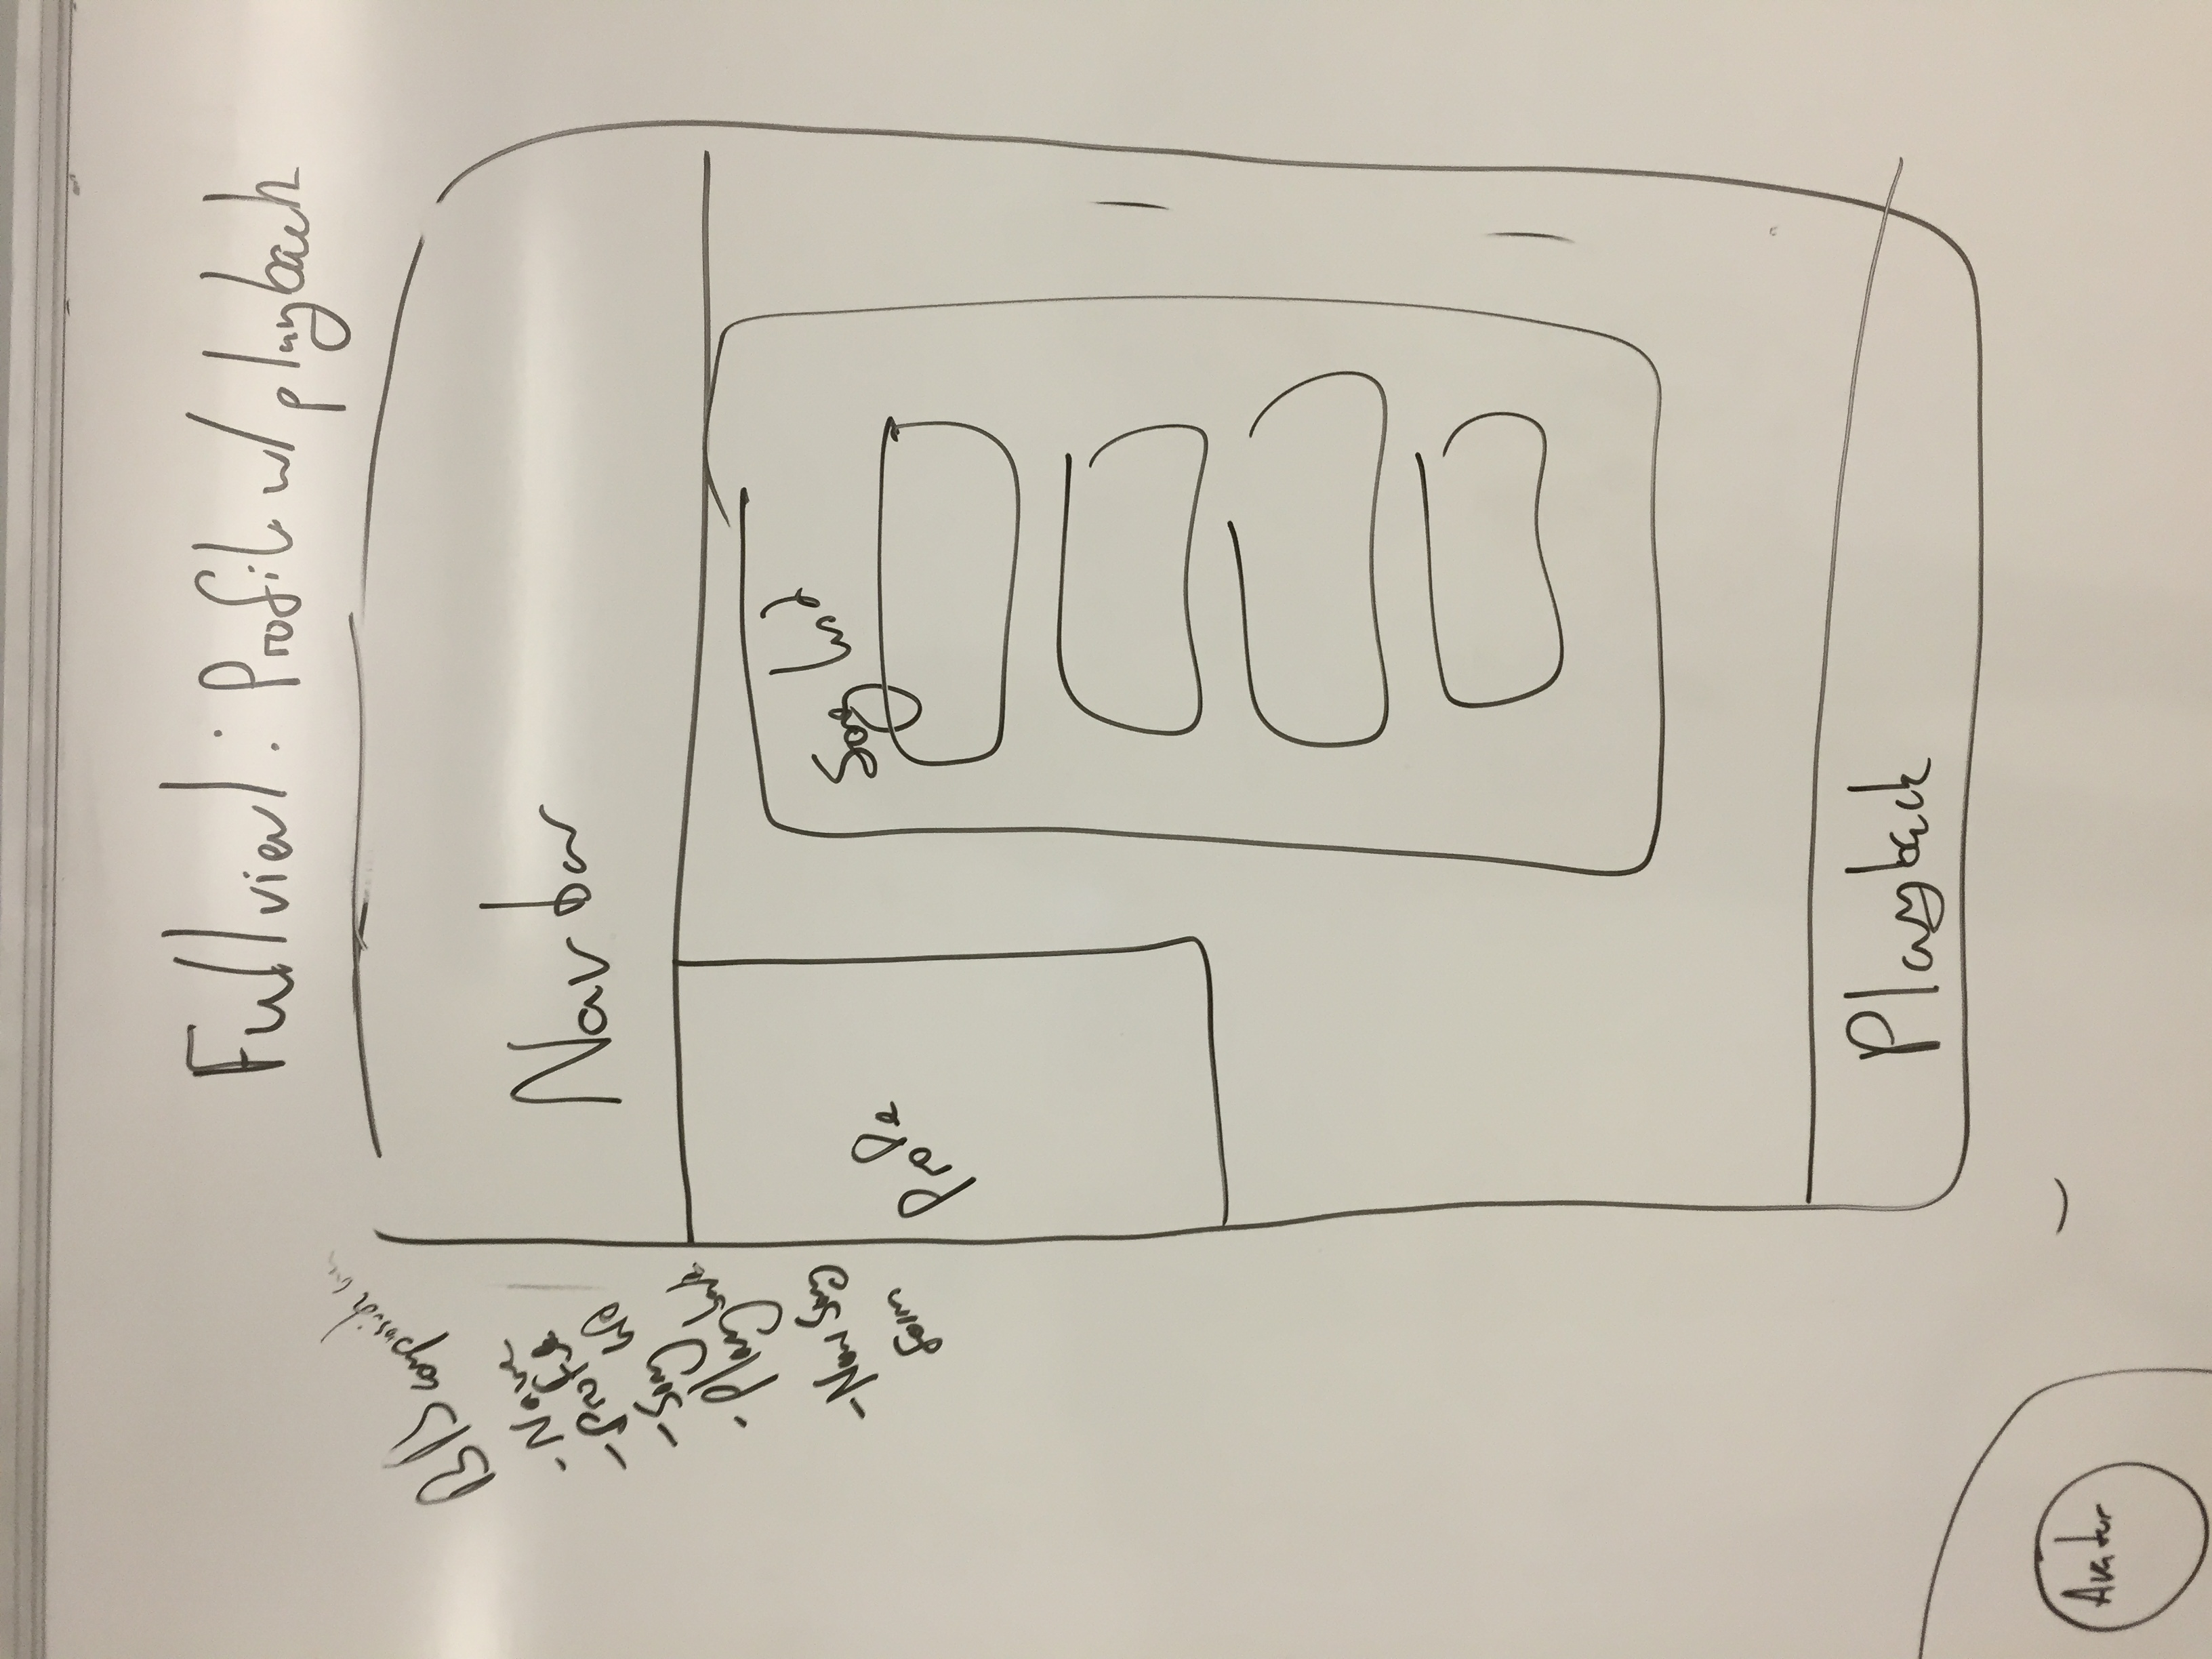 Full view : Profile w/ playback
BB composite view
- Nav
- Profile
- Song list
- Playback
- New Song
form
Navbar
Profile
Song list
Playback
Avatar